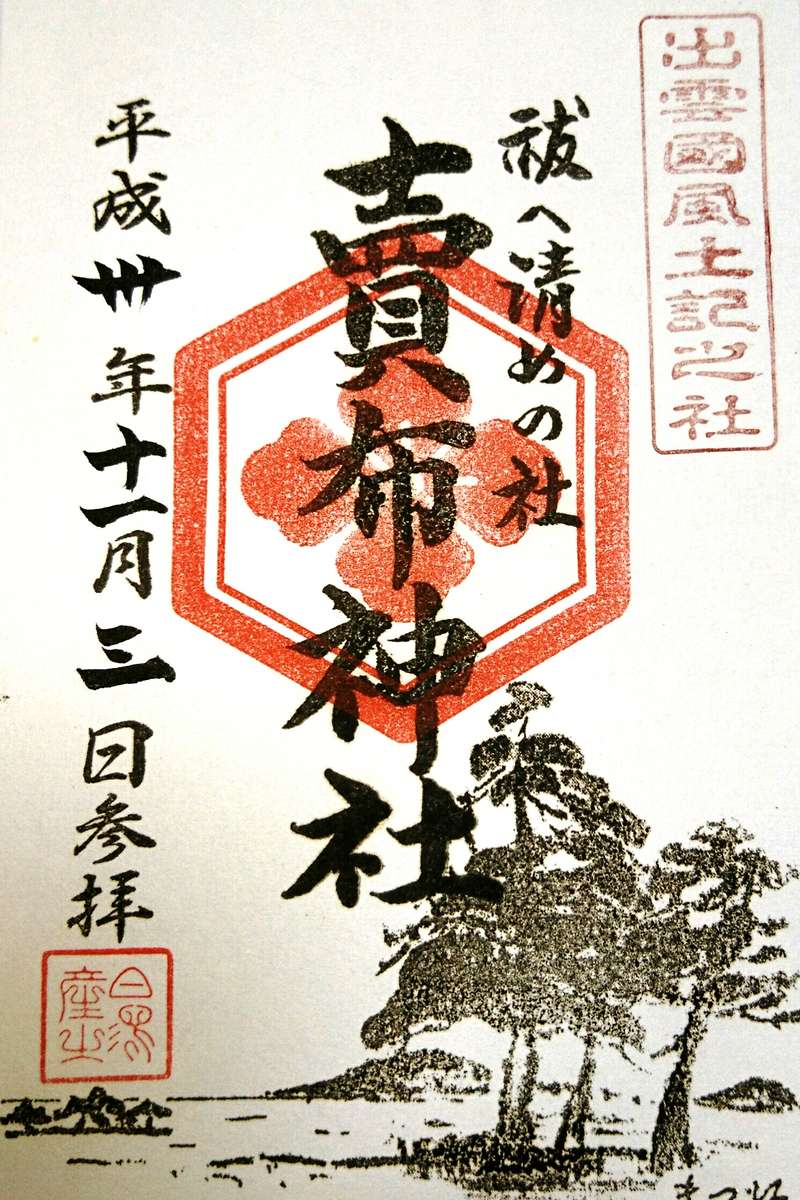 出雲國風土記之社
祓へ清めの社
賣布神社
平成卅年十一月三日参拝